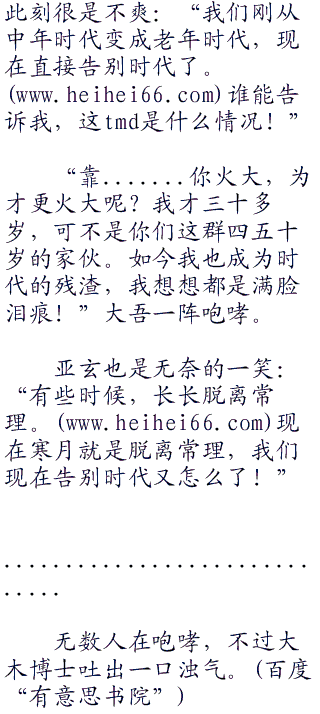 此刻很是不爽：“我们刚从
中年时代变成老年时代，现
在直接告别时代了。
(www.heihei66.com)谁能告
诉我，这tmd是什么情况！”
“靠.......你火大，为
才更火大呢？我才三十多
岁，可不是你们这群四五十
岁的家伙。如今我也成为时
代的残渣，我想想都是满脸
泪痕！”大吾一阵咆哮。
亚玄也是无奈的一笑：
“有些时候，长长脱离常
理。(www.heihei66.com)现
在寒月就是脱离常理，我们
现在告别时代又怎么了！”
.........................
.....
无数人在咆哮，不过大
木博士吐出一口浊气。(百度
“有意思书院”)